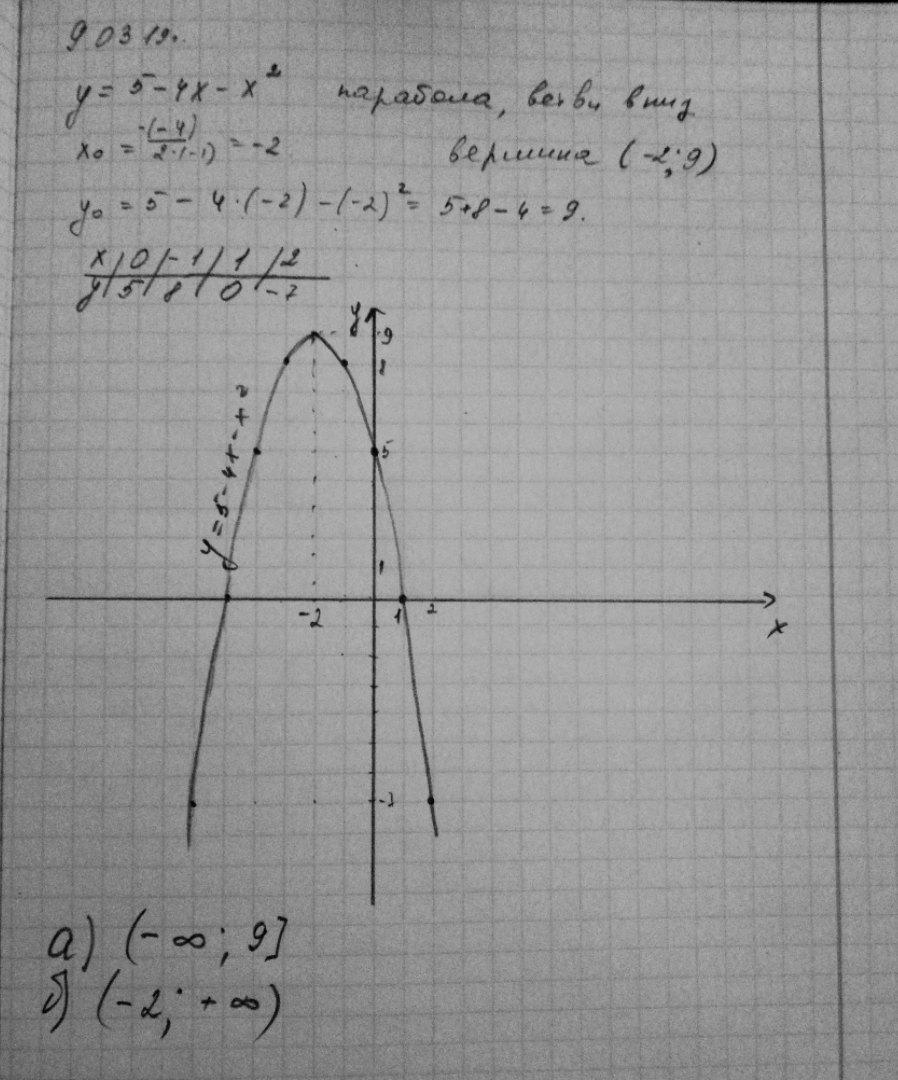 9 03 19.
y = 5 - 4x - x² парабола, ветви вниз
x₀ = -(-4)/2·(-1) = -2 вершина (-2; 9)
y₀ = 5 - 4·(-2) - (-2)² = 5+8-4 = 9.
x | 0 | -1 | 1 | 2
y | 5 | 8 | 0 | -7
y
9
8
y = 5 - 4x - x²
5
1
-2 1 2
x
-7
а) (-∞; 9]
б) (-2; +∞)